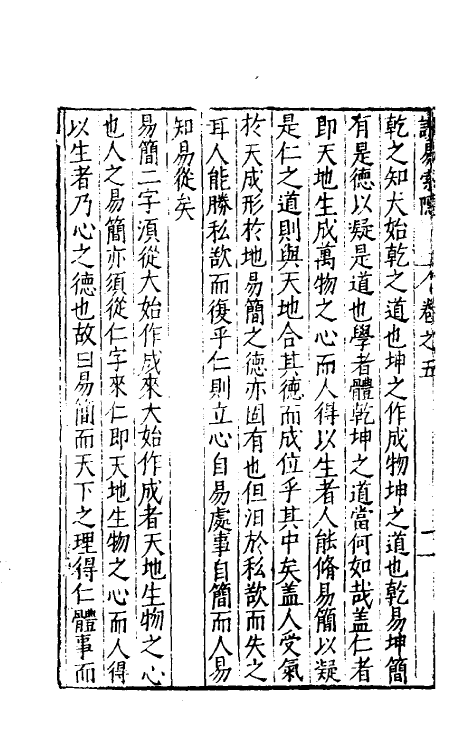 讀易索隱
卷之五
二
乾之知大始乾之道也坤之作成物坤之道也乾易坤簡
有是德以凝是道也學者體乾坤之道當何如哉盖仁者
即天地生成萬物之心而人得以生者人能脩易簡以凝
是仁之道則與天地合其德而成位乎其中矣盖人受氣
於天成形於地易簡之德亦固有也但汩於私欲而失之
耳人能勝私欲而復乎仁則立心自易處事自簡而人易
知易從矣
易簡二字須從大始作成來大始作成者天地生物之心
也人之易簡亦須從仁字來仁即天地生物之心而人得
以生者乃心之德也故曰易簡而天下之理得仁體事而